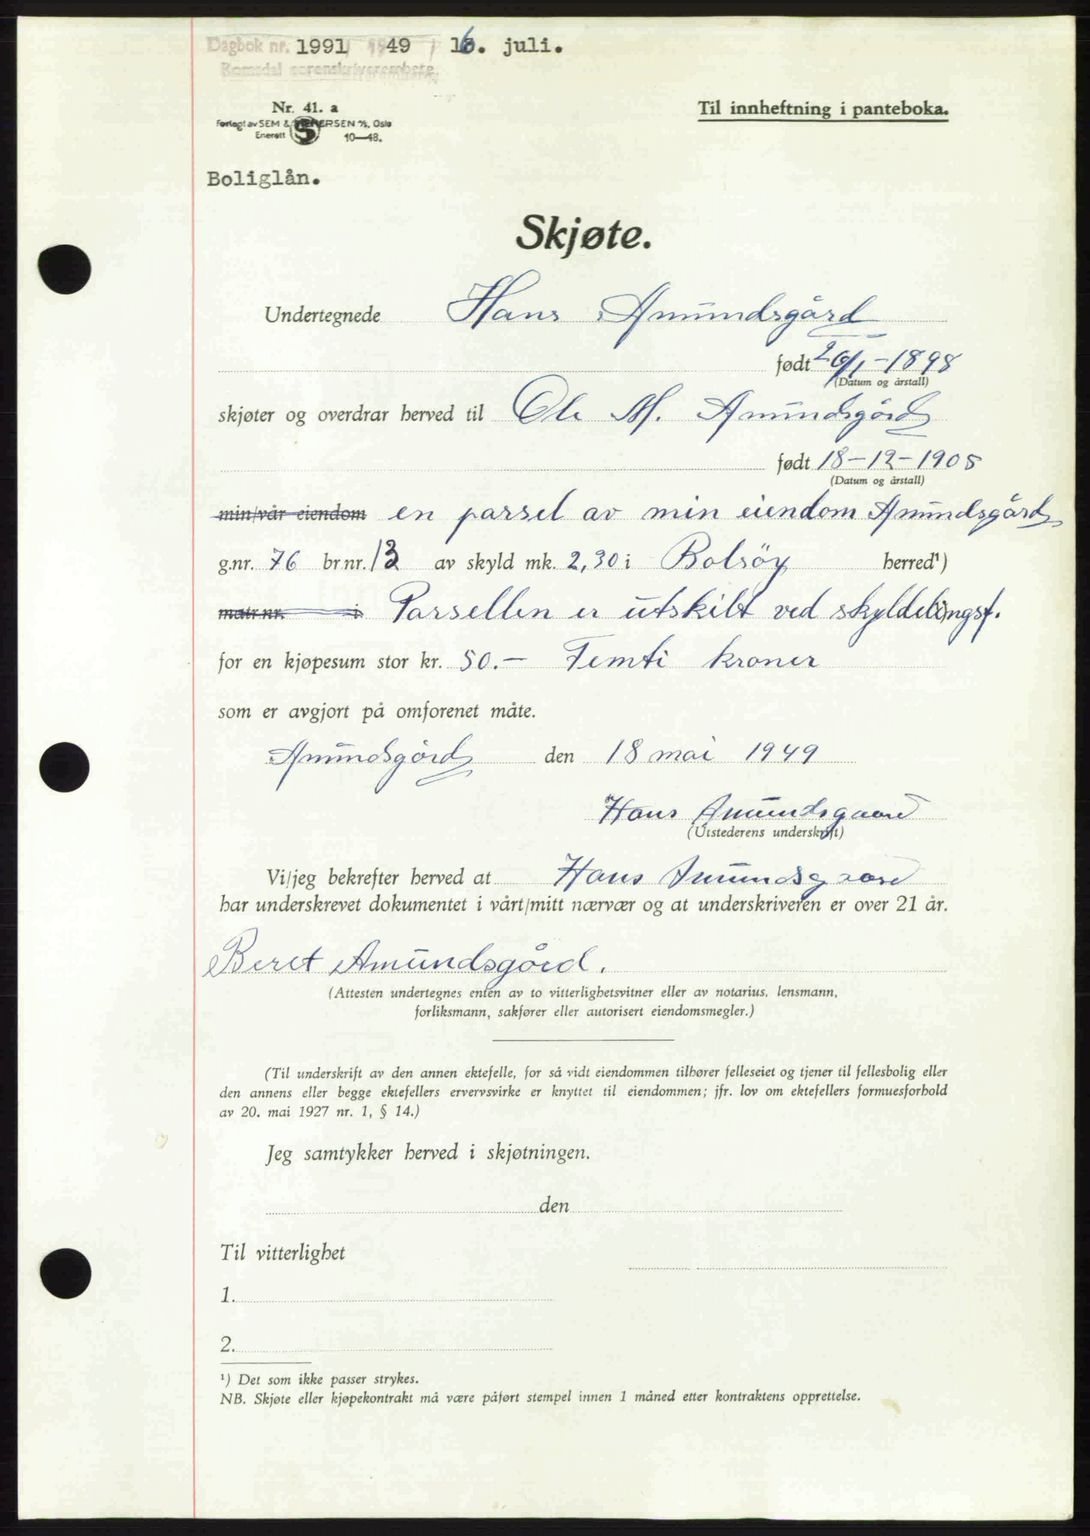 Dagbok nr. 1991 1949 16. juli.
Romsdal sorenskriverembete
Nr. 41. a
Til innheftning i panteboka.
Forlagt av SEM & STENERSEN A/S, Oslo
Enerett 10—48.
Boliglån.
Skjøte.
Undertegnede Hans Amundsgård
født 26/1-1898
(Datum og årstall)
skjøter og overdrar herved til Ole M. Amundsgård
født 18-12-1905
(Datum og årstall)
min/vår eiendom en parsel av min eiendom Amundsgård
g.nr. 76 br.nr. 13 av skyld mk. 2,30 i Bolsöy herred¹)
matr.nr. i Parsellen er utskilt ved skyldelingsf.
for en kjøpesum stor kr. 50.- Femti kroner
som er avgjort på omforenet måte.
Amundsgård den 18 mai 1949
Hans Amundsgaard
(Utstederens underskrift)
Vi/jeg bekrefter herved at Hans Amundsgaard
har underskrevet dokumentet i vårt/mitt nærvær og at underskriveren er over 21 år.
Beret Amundsgård.
(Attesten undertegnes enten av to vitterlighetsvitner eller av notarius, lensmann,
forliksmann, sakfører eller autorisert eiendomsmegler.)
(Til underskrift av den annen ektefelle, for så vidt eiendommen tilhører felleseiet og tjener til fellesbolig eller
den annens eller begge ektefellers ervervsvirke er knyttet til eiendommen; jfr. lov om ektefellers formuesforhold
av 20. mai 1927 nr. 1, § 14.)
Jeg samtykker herved i skjøtningen.
den
Til vitterlighet
1.
2.
¹) Det som ikke passer strykes.
NB. Skjøte eller kjøpekontrakt må være påført stempel innen 1 måned etter kontraktens opprettelse.